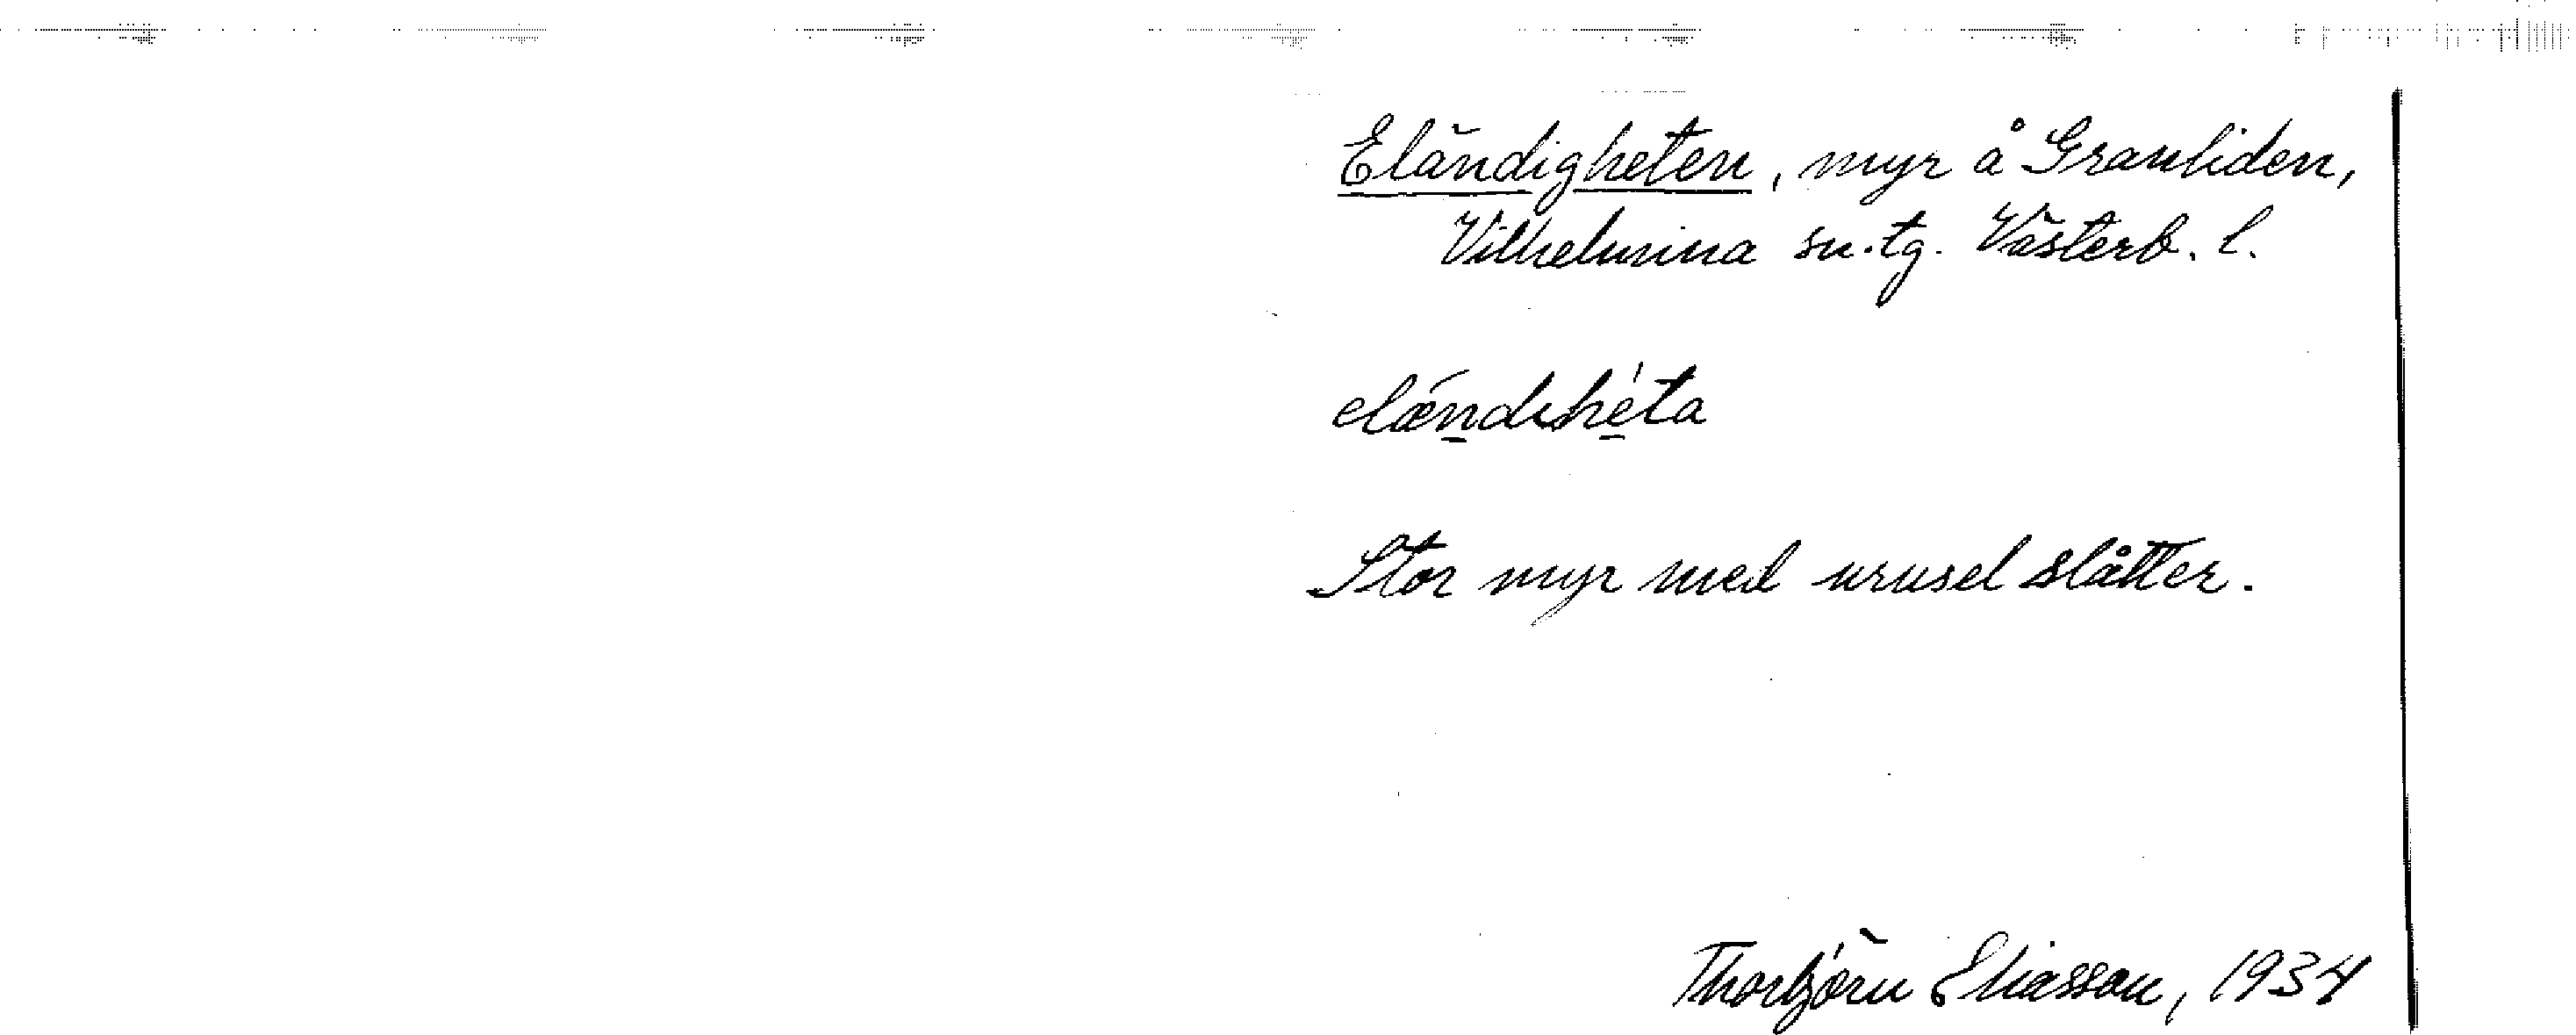 Eländigheten, myr å Granliden,
Vilhelmina sn. tg. Västerb. l.
elǽnd​ɩhéta
Stor myr med urusel slåtter.
Thorbjörn Eliasson, 1934